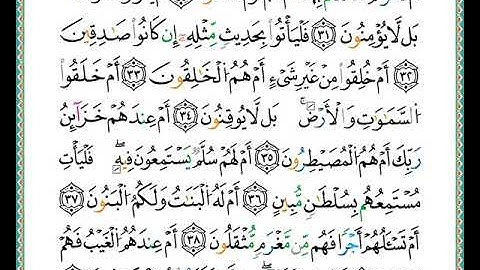 بَل لَّا يُؤْمِنُونَ ٣١ فَلْيَأْتُوا۟ بِحَدِيثٍ مِّثْلِهِۦٓ إِن كَانُوا۟ صَٰدِقِينَ
٣٢ أَمْ خُلِقُوا۟ مِنْ غَيْرِ شَىْءٍ أَمْ هُمُ ٱلْخَٰلِقُونَ ٣٣ أَمْ خَلَقُوا۟
ٱلسَّمَٰوَٰتِ وَٱلْأَرْضَ ۚ بَل لَّا يُوقِنُونَ ٣٤ أَمْ عِندَهُمْ خَزَآئِنُ
رَبِّكَ أَمْ هُمُ ٱلْمُصَۣيْطِرُونَ ٣٥ أَمْ لَهُمْ سُلَّمٌ يَسْتَمِعُونَ فِيهِ ۖ فَلْيَأْتِ
مُسْتَمِعُهُم بِسُلْطَٰنٍ مُّبِينٍ ٣٦ أَمْ لَهُ ٱلْبَنَٰتُ وَلَكُمُ ٱلْبَنُونَ ٣٧
أَمْ تَسْـَٔلُهُمْ أَجْرًا فَهُم مِّن مَّغْرَمٍ مُّثْقَلُونَ ٣٨ أَمْ عِندَهُمُ ٱلْغَيْبُ فَهُمْ